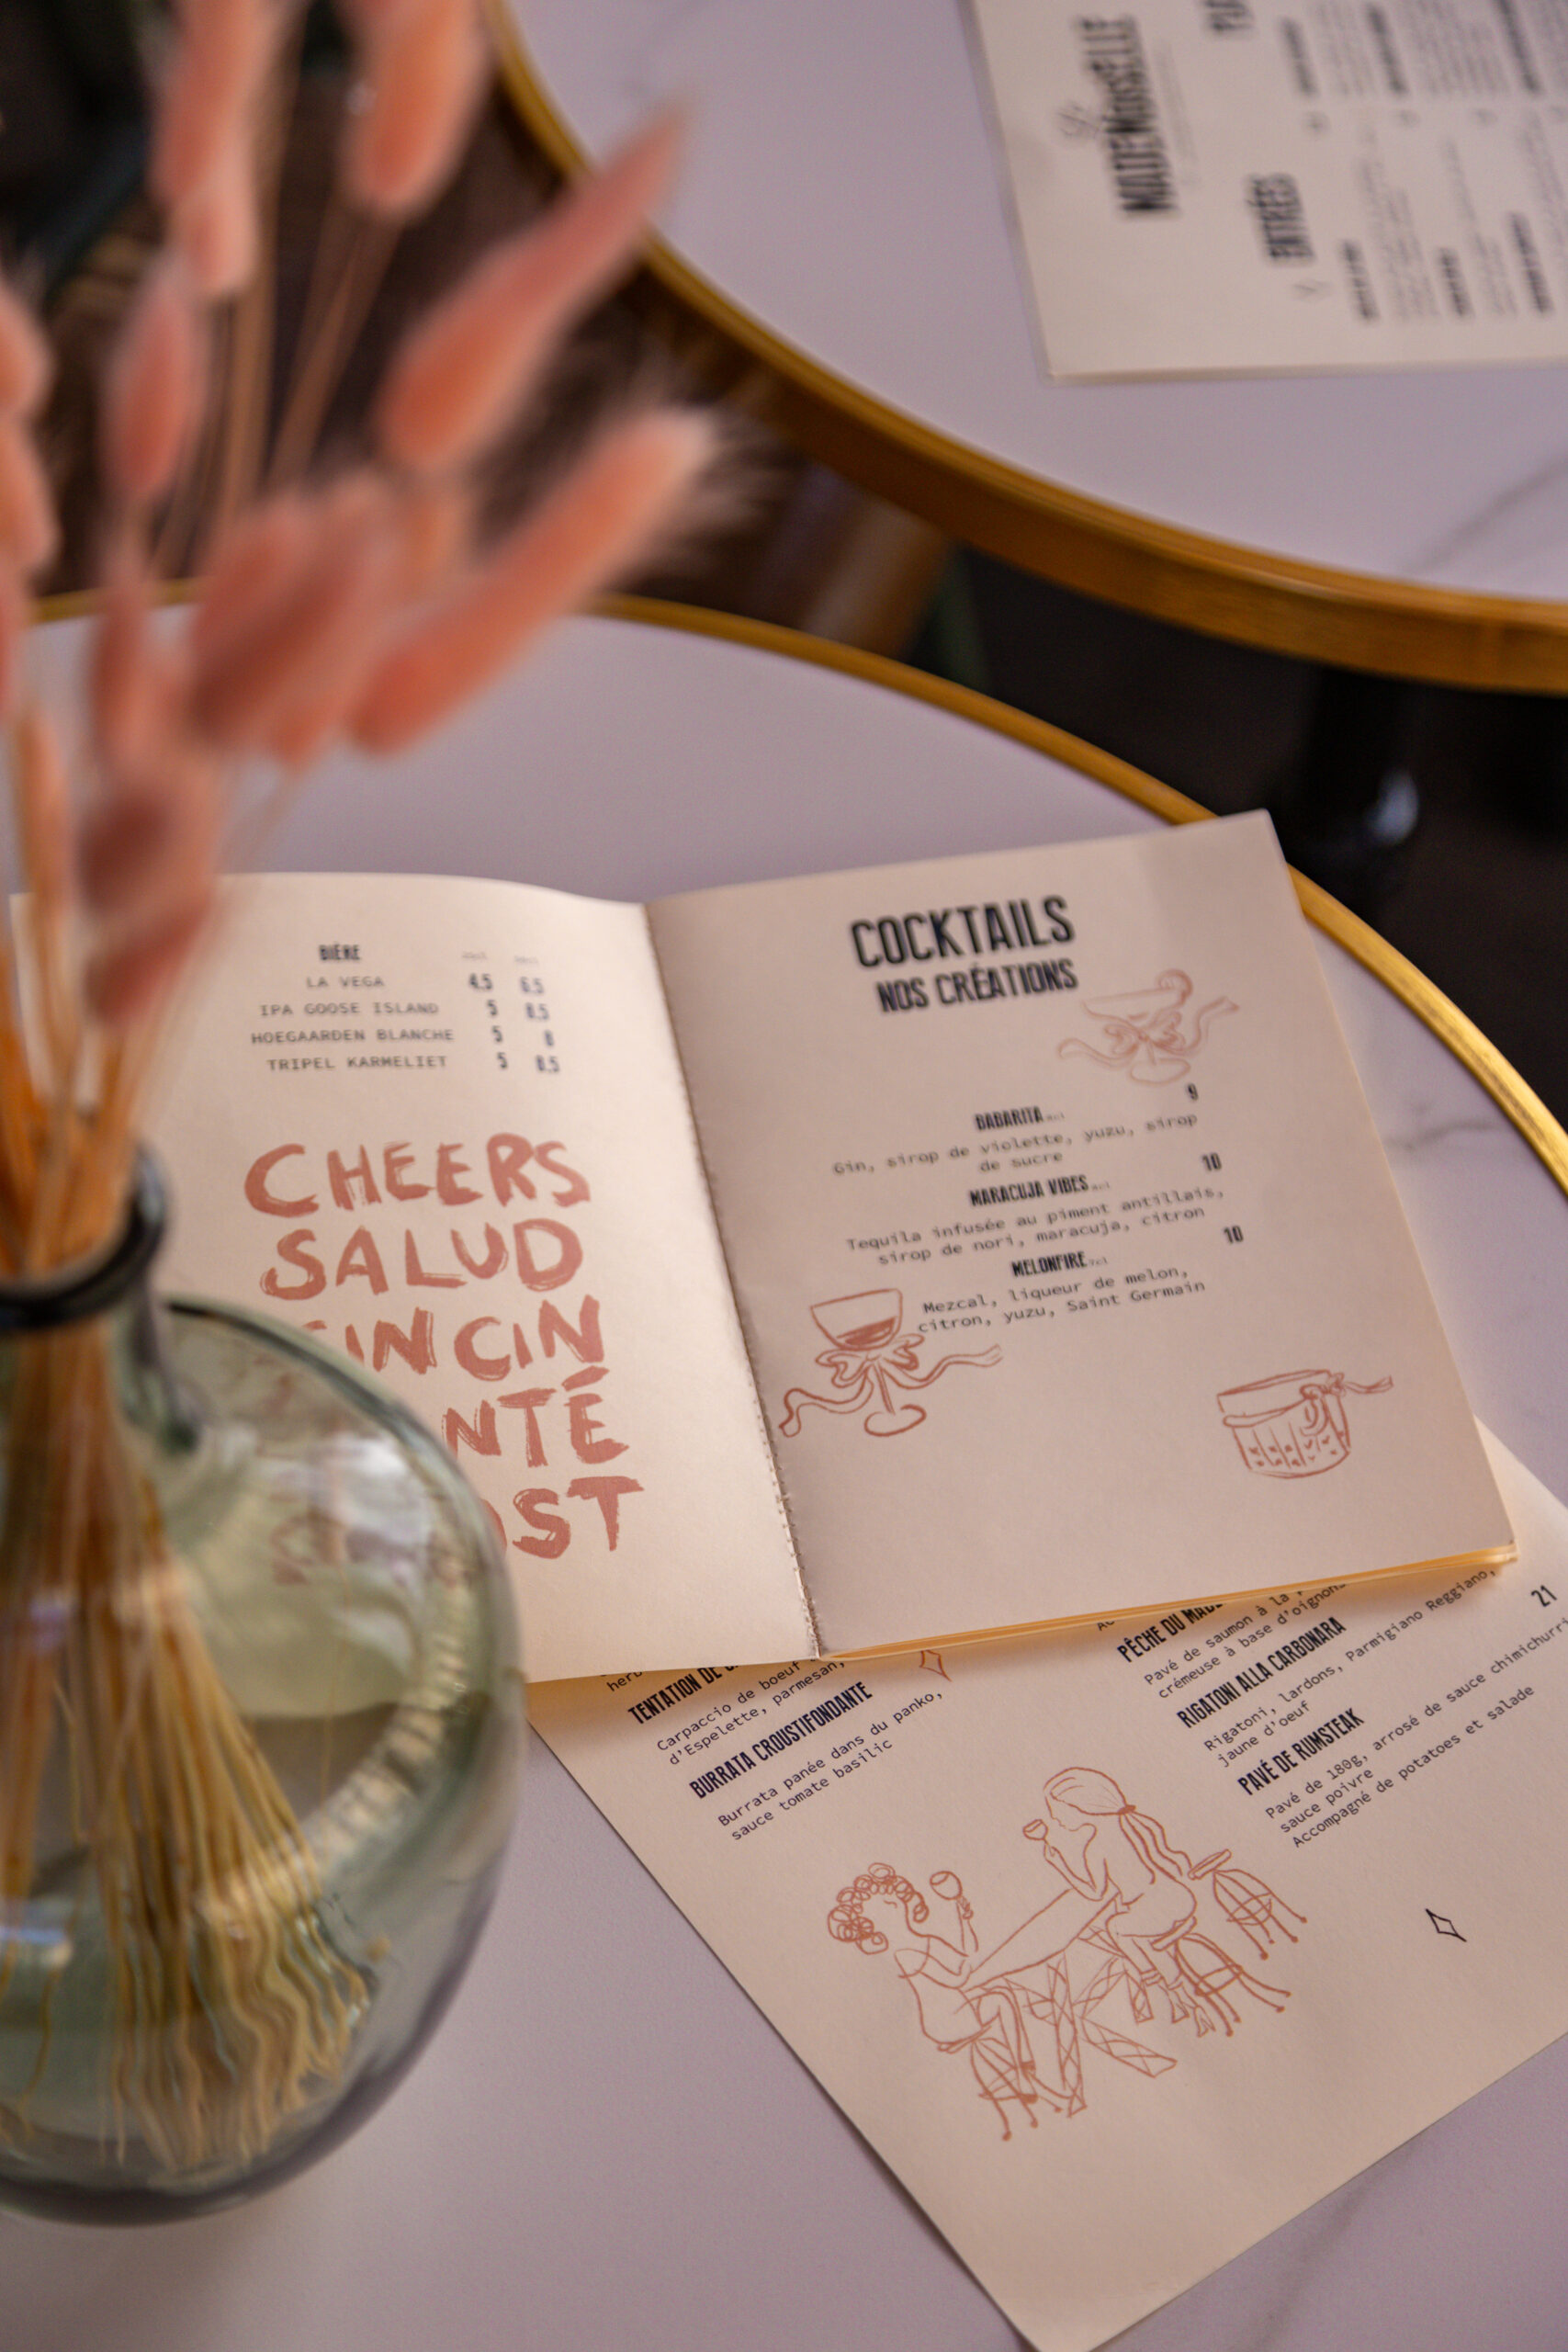 Le
MADEMOISELLE
ENTRÉES
BIÈRE
LA VEGA 4.5 6.5
IPA GOOSE ISLAND 5 8.5
HOEGAARDEN BLANCHE 5 8
TRIPEL KARMELIET 5 8.5
CHEERS
SALUD
CIN
NTÉ
OST
COCKTAILS
NOS CRÉATIONS
BABARITA 9
Gin, sirop de violette, yuzu, sirop
de sucre
MARACUJA VIBES 10
Tequila infusée au piment antillais,
sirop de nori, maracuja, citron
MELONFIRE 10
Mezcal, liqueur de melon,
citron, yuzu, Saint Germain
TENTATION DE
Carpaccio de boeuf
d'Espelette, parmesan,
BURRATA CROUSTIFONDANTE
Burrata panée dans du panko,
sauce tomate basilic
PÊCHE DU
Pavé de saumon à la
crémeuse à base d'oignons
RIGATONI ALLA CARBONARA
Rigatoni, lardons, Parmigiano Reggiano,
jaune d'oeuf
PAVÉ DE RUMSTEAK 21
Pavé de 180g, arrosé de sauce chimichurri
sauce poivre
Accompagné de potatoes et salade